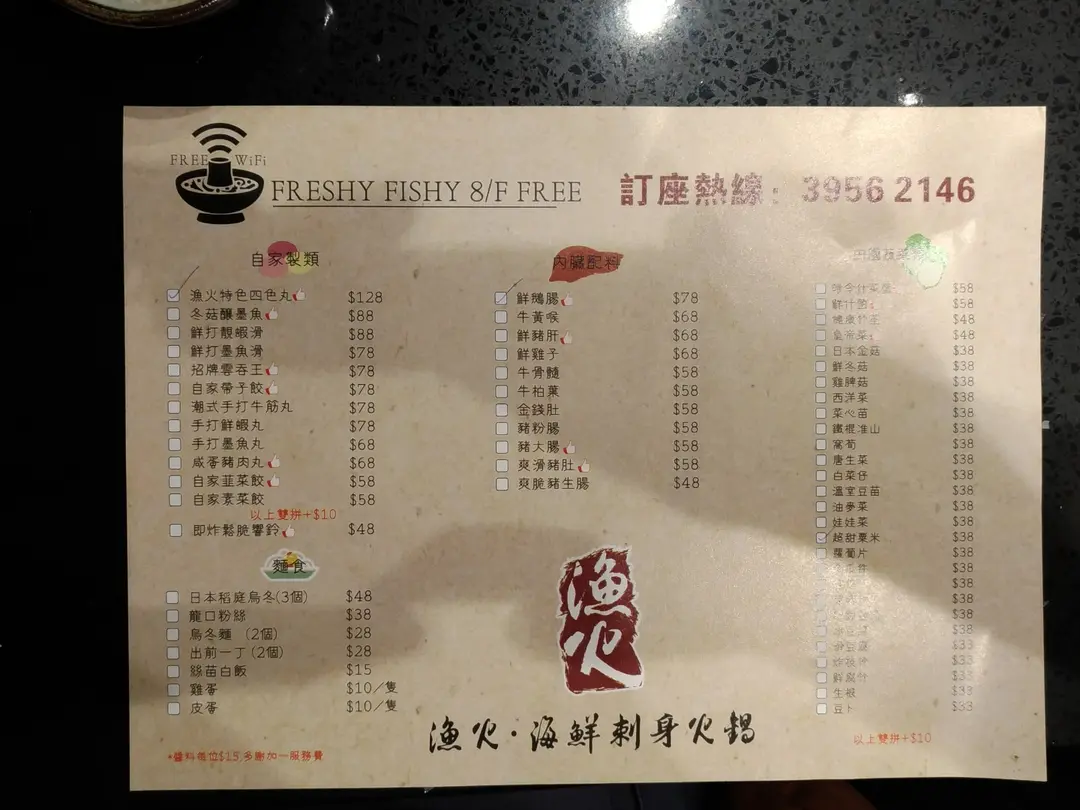 FREE WiFi
FRESHY FISHY 8/F FREE
訂座熱線： 3956 2146
自家製類
漁火特色四色丸 $128
冬菇釀墨魚 $88
鮮打靚蝦滑 $88
鮮打墨魚滑 $78
招牌雲吞王 $78
自家帶子餃 $78
潮式手打牛筋丸 $78
手打鮮蝦丸 $78
手打墨魚丸 $68
咸蛋豬肉丸 $68
自家韮菜餃 $58
自家素菜餃 $58
以上雙拼+$10
即炸鬆脆響鈴 $48
麵食
日本稻庭烏冬(3個) $48
龍口粉絲 $38
烏冬麵 (2個) $28
出前一丁(2個) $28
絲苗白飯 $15
雞蛋 $10/隻
皮蛋 $10/隻
*醬料每位$15,多謝加一服務費
內臟配料
鮮鵝腸 $78
牛黃喉 $68
鮮豬肝 $68
鮮雞子 $68
牛骨髓 $58
牛柏葉 $58
金錢肚 $58
豬粉腸 $58
豬大腸 $58
爽滑豬肚 $58
爽脆豬生腸 $48
漁火
漁火·海鮮刺身火鍋
時令什菜盤 $58
鮮什菌 $58
健康竹笙 $48
皇帝菜 $48
日本金菇 $38
鮮冬菇 $38
雞脾菇 $38
西洋菜 $38
菜心苗 $38
鐵棍淮山 $38
萵筍 $38
唐生菜 $38
白菜仔 $38
溫室豆苗 $38
油麥菜 $38
娃娃菜 $38
超甜粟米 $38
蘿蔔片 $38
$38
$38
$38
$38
$38
$33
$33
鮮腐竹 $33
生根 $33
豆卜 $33
以上雙拼+$10